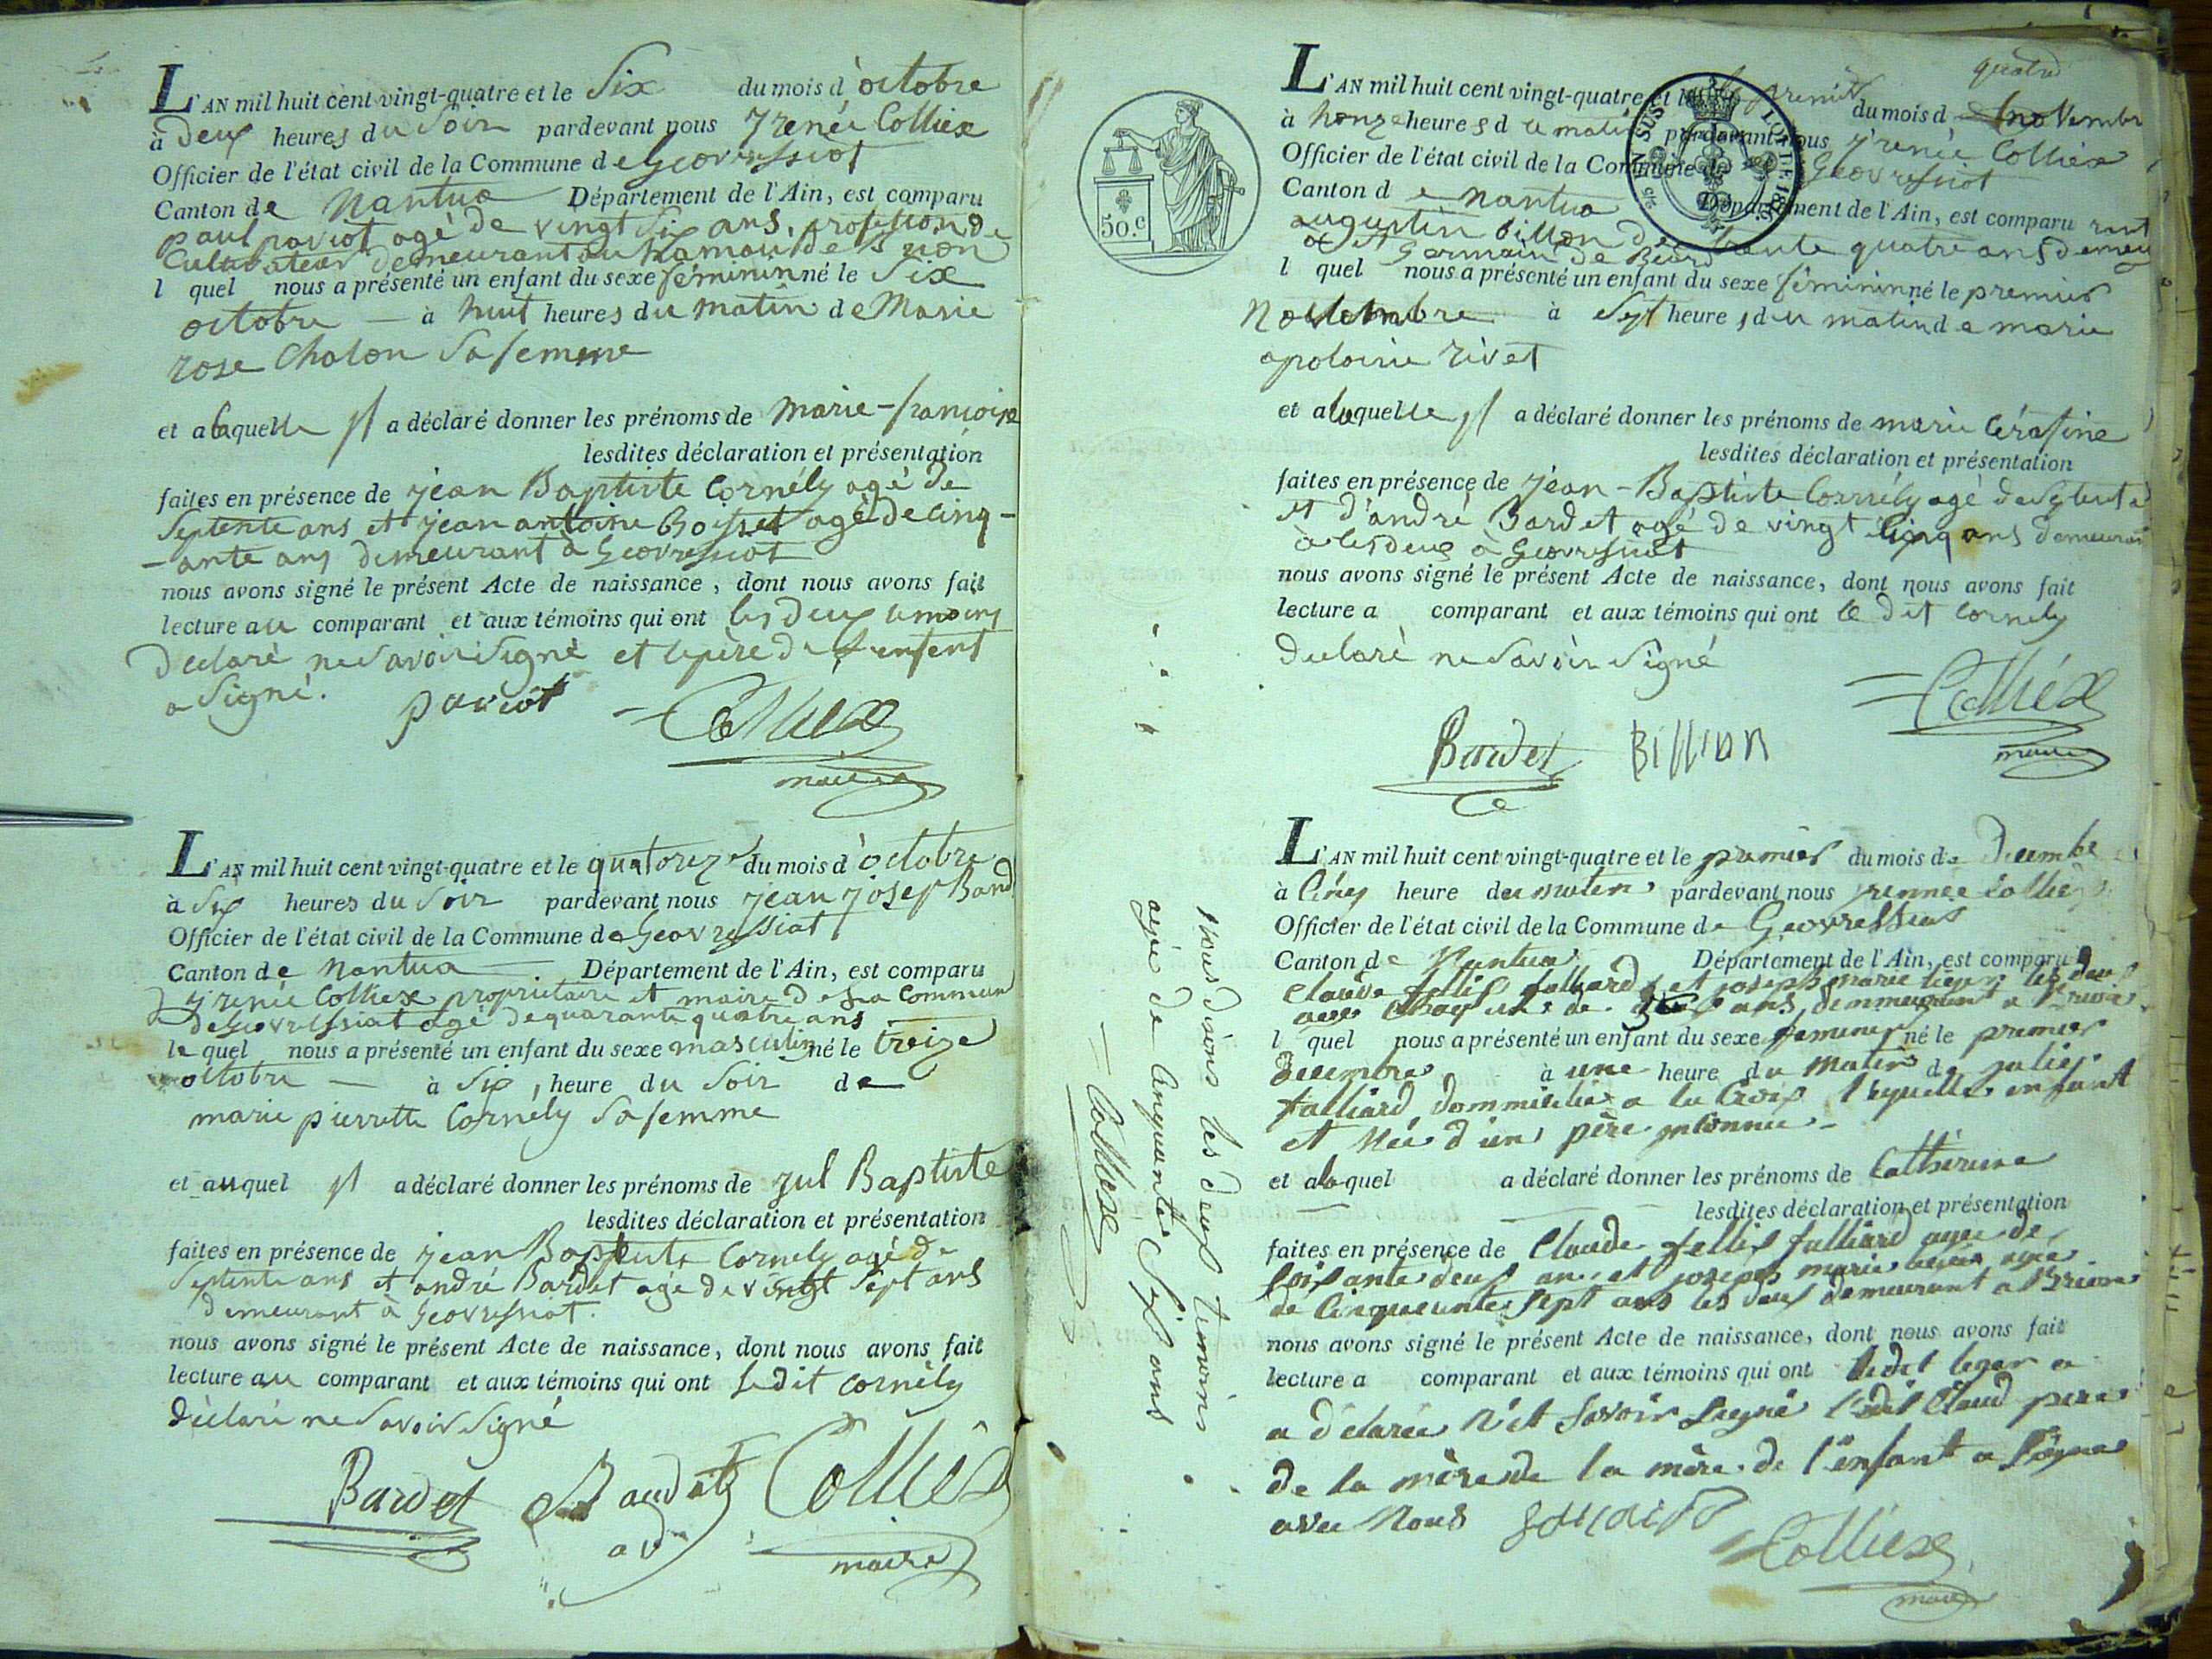 L'AN mil huit cent vingt-quatre et le Six du mois d'octobre
à deux heures du Soir pardevant nous yrenée Colliex
Officier de l'état civil de la Commune de Geovressiat
Canton de Nantua Département de l'Ain, est comparu
paul paviot agé de vingt Six ans, profession de
Cultivateur demeurant au hamau de
l quel nous a présenté un enfant du sexe féminin né le Six
octobre à huit heures du matin de Marie
rose Chalon Sa femme
et a laquelle yl a déclaré donner les prénoms de Marie-francoise
lesdites déclaration et présentation
faites en présence de jean Baptiste Cornély agé de
Septente ans et jean antoine Goisset agé de cinq-
-ante ans demeurant à Geovressiat
nous avons signé le présent Acte de naissance, dont nous avons fait
lecture au comparant et aux témoins qui ont les deux temoins
declaré ne Savoir Signé et le père de l'enfent
a Signé. paviot Colliex
maire
L'AN mil huit cent vingt-quatre et le quatorze du mois d'octobre
à Six heures du Soir pardevant nous jean josep Band
Officier de l'état civil de la Commune de Geovressiat
Canton de Nantua Département de l'Ain, est comparu
yrenée Colliex propriétaire et maire de la Commune
de Geovressiat agé de quarante quatre ans
le quel nous a présenté un enfant du sexe masculin né le treize
octobre à Six, heure du Soir de
marie pierrette Cornély Sa femme
et au quel yl a déclaré donner les prénoms de Jul Baptiste
lesdites déclaration et présentation
faites en présence de jean Baptiste Cornely agé de
Septente ans et andré Bardet agé de vingt Sept ans
demeurant à Geovressiat.
nous avons signé le présent Acte de naissance, dont nous avons fait
lecture au comparant et aux témoins qui ont Ledit Cornély
déclaré ne Savoir Signé
Bardet Colliex
maire
L'AN mil huit cent vingt-quatre et le premier du mois de novembre
à honze heures du matin pardevant nous yrenée Colliex
Officier de l'état civil de la Commune de Geovressiat
Canton de Nantua Département de l'Ain, est comparu
50.c
augustin billon de trente quatre ans demeu
a St Germain de Beard
l quel nous a présenté un enfant du sexe féminin né le premier
Novembre à Sept heures du matin de marie
apolonie rivet
et a laquelle yl a déclaré donner les prénoms de marie Cérafine
lesdites déclaration et présentation
faites en présence de jean-Baptiste Cornély agé de Septente
et d'andré Bardet agé de vingt Cinq ans demeurant
les deux à Geovressiat
nous avons signé le présent Acte de naissance, dont nous avons fait
lecture a comparant et aux témoins qui ont le dit Cornely
declaré ne Savoir Signé
Colliex
maire
Bardet Billion
L'AN mil huit cent vingt-quatre et le premier du mois de decembre
à Cinq heure du matin pardevant nous yrennée Colliex
Officier de l'état civil de la Commune de Geovressiat
Canton de Nantua Département de l'Ain, est comparu
Claude felix falliard et joseph marie les deux
ans, demmeurant a
l quel nous a présenté un enfant du sexe feminin né le premier
decembre à une heure du Matin de julie
falliard dommicilié a la Croix lequelle enfant
et Née d'un père inconnu
et a la quel a déclaré donner les prénoms de Catherine
lesdites déclaration et présentation
faites en présence de Claude fellix falliard agée de
Soisante deux ans et joseph marie agée
de Cinquante Sept ans les deux demeurant a Brion
nous avons signé le présent Acte de naissance, dont nous avons fait
lecture a comparant et aux témoins qui ont ledit leger a
a déclarée N'et Savoir Signé ledit Claud pere
de la mère de la mère de l'enfant a Signé
avec Nous Colliex
maire
nous disons les deux temoins
agée de Cinquante Six ans
Colliex